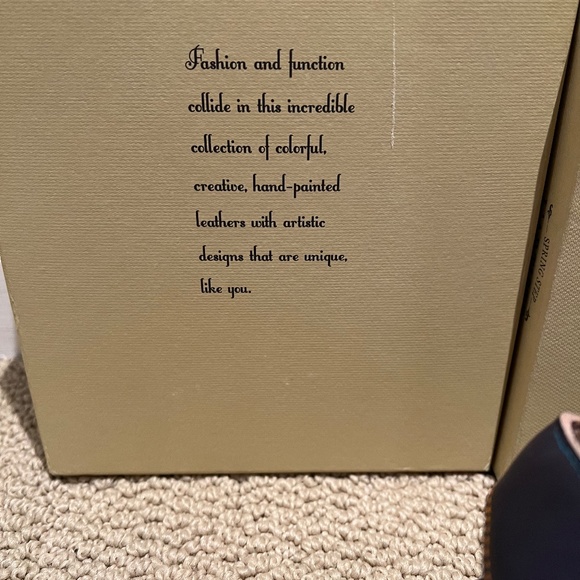 Fashion and function
collide in this incredible
collection of colorful,
creative, hand-painted
leathers with artistic
designs that are unique,
like you.
SPRING STEP